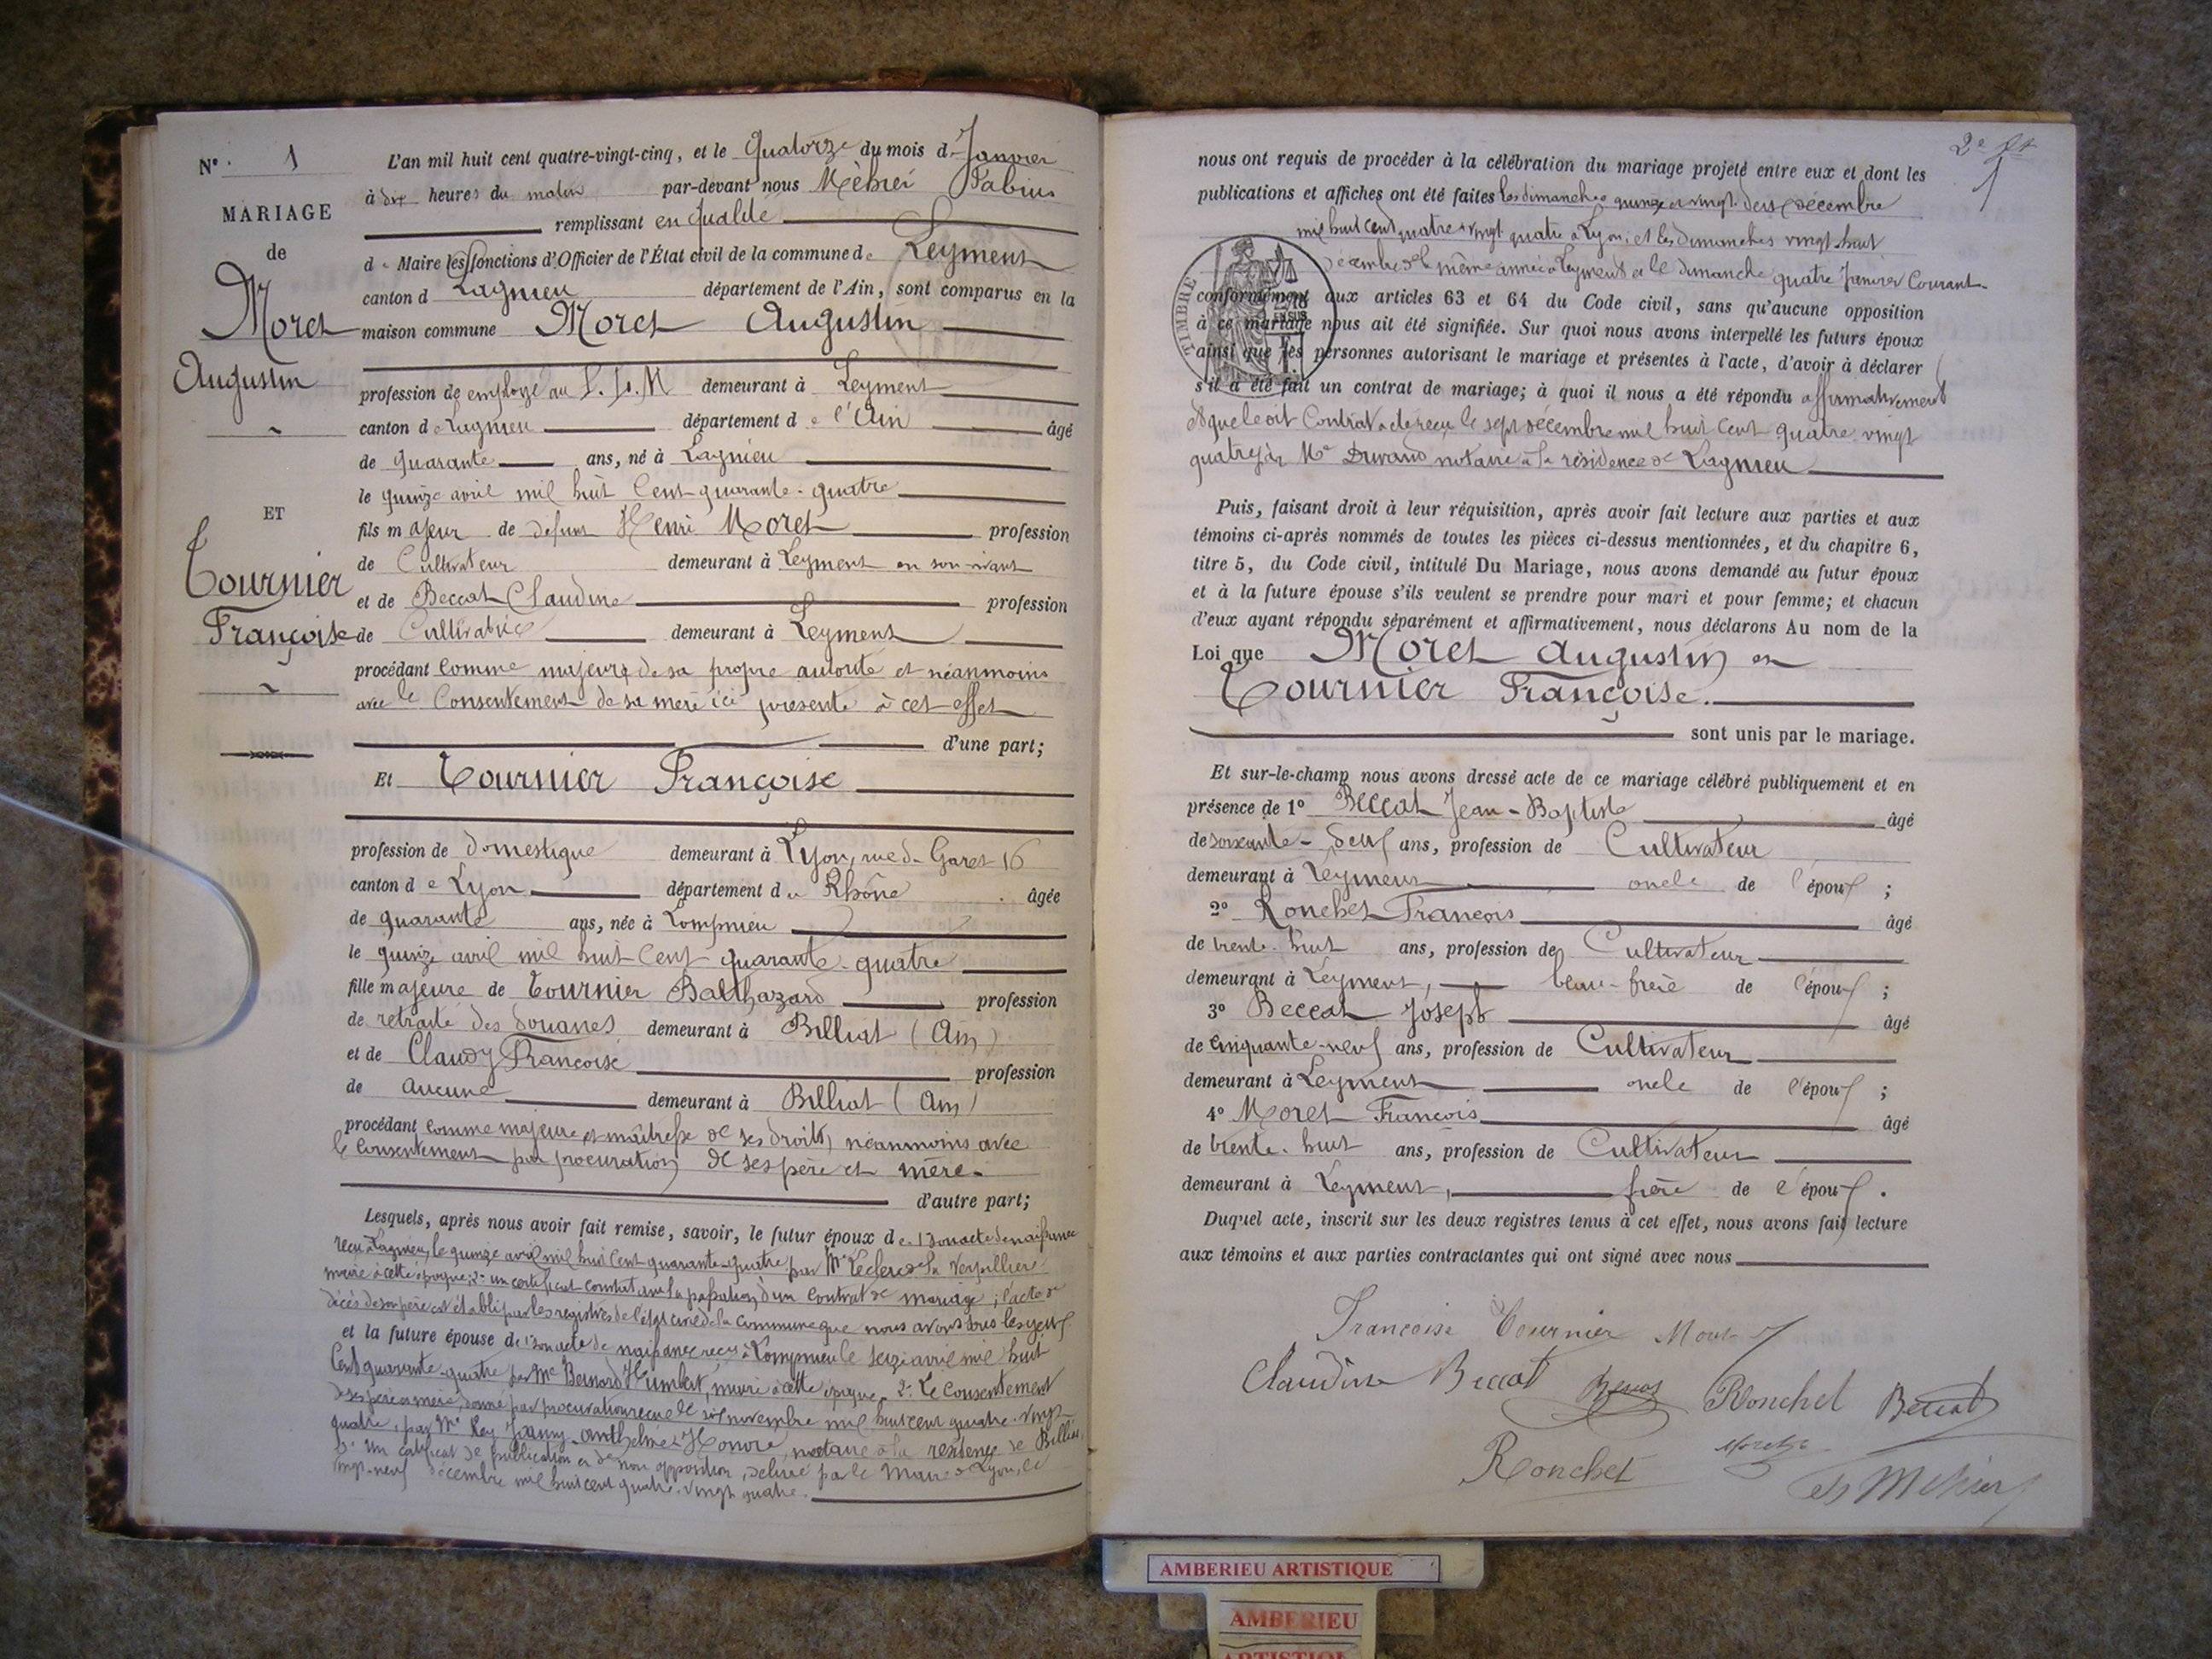 N°. 1
MARIAGE
de
Moret
Augustin
ET
Tournier
Françoise
L'an mil huit cent quatre-vingt-cinq, et le Quatorze du mois de Janvier
à dix heures du matin par-devant nous Méhier Fabius
remplissant en qualité
de Maire les fonctions d'Officier de l'État civil de la commune de Leyment
canton d Lagnieu département de l'Ain, sont comparus en la
maison commune Moret Augustin
profession de employé au P. L. M demeurant à Leyment
canton de Lagnieu département de l'Ain âgé
de quarante ans, né à Lagnieu
le quinze avril mil huit Cent quarante-quatre
fils majeur de défunt Henri Moret profession
de Cultivateur demeurant à Leyment en son vivant
et de Beccat Claudine profession
de Cultivatrice demeurant à Leyment
procédant Comme majeur, de sa propre autorité et néanmoins
avec le Consentement de sa mère ici présente à cet effet
d'une part;
Et Tournier Françoise
profession de domestique demeurant à Lyon, rue du Garet 16
canton de Lyon département du Rhône âgée
de quarante ans, née à Lompnieu
le quinze avril mil huit Cent quarante-quatre
fille majeure de Tournier Balthazard profession
de retraité des douanes demeurant à Billiat (Ain)
et de Claudy Françoise profession
de aucune demeurant à Billiat (Ain)
procédant comme majeure et maîtresse de ses droits, néanmoins avec
le Consentement par procuration de ses père et mère.
d'autre part;
Lesquels, après nous avoir fait remise, savoir, le futur époux de 1° son acte de naissance
reçu à Lagnieu, le quinze avril mil huit Cent quarante-quatre par Mr Leclerc de la Verpillière
maire à cette époque; 2° un certificat constatant la passation d'un Contrat de mariage; l'acte de
décès de son père est établi par les registres de l'état civil de la commune que nous avons sous les yeux
et la future épouse de 1° son acte de naissance reçu à Lompnieu le seize avril mil huit
Cent quarante-quatre par Mr Bernard Humbert, maire à cette époque 2° Le Consentement
de ses père et mère, donné par procuration reçue le six novembre mil huit cent quatre-vingt-
quatre, par Me Rey Anthelme Honoré, notaire à la résidence de Billiat,
3° un certificat de publication et de non opposition, délivré par le Maire de Lyon, le
vingt-neuf décembre mil huit cent quatre-vingt quatre.
2e
nous ont requis de procéder à la célébration du mariage projeté entre eux et dont les
publications et affiches ont été faites les dimanches quinze et vingt-deux décembre
mil huit Cent quatre-vingt quatre à Lyon, et les dimanches vingt-huit
décembre de la même année à Leyment et le dimanche quatre Janvier Courant
conformément aux articles 63 et 64 du Code civil, sans qu'aucune opposition
à ce mariage nous ait été signifiée. Sur quoi nous avons interpellé les futurs époux
ainsi que les personnes autorisant le mariage et présentes à l'acte, d'avoir à déclarer
s'il a été fait un contrat de mariage; à quoi il nous a été répondu affirmativement
et que le dit Contrat a été reçu le sept décembre mil huit Cent quatre-vingt
quatre par Me Durand notaire à la résidence de Lagnieu
TIMBRE
Puis, faisant droit à leur réquisition, après avoir fait lecture aux parties et aux
témoins ci-après nommés de toutes les pièces ci-dessus mentionnées, et du chapitre 6,
titre 5, du Code civil, intitulé Du Mariage, nous avons demandé au futur époux
et à la future épouse s'ils veulent se prendre pour mari et pour femme; et chacun
d'eux ayant répondu séparément et affirmativement, nous déclarons Au nom de la
Loi que Moret Augustin et
Tournier Françoise.
sont unis par le mariage.
Et sur-le-champ nous avons dressé acte de ce mariage célébré publiquement et en
présence de 1° Beccat Jean-Baptiste âgé
de soixante-deux ans, profession de Cultivateur
demeurant à Leyment oncle de l'époux;
2° Ronchet François âgé
de trente-huit ans, profession de Cultivateur
demeurant à Leyment, beau-frère de l'époux;
3° Beccat Joseph âgé
de cinquante-neuf ans, profession de Cultivateur
demeurant à Leyment oncle de l'époux;
4° Moret François âgé
de trente-huit ans, profession de Cultivateur
demeurant à Leyment, frère de l'époux.
Duquel acte, inscrit sur les deux registres tenus à cet effet, nous avons fait lecture
aux témoins et aux parties contractantes qui ont signé avec nous
Francoise Tournier Moret
Claudine Beccat Beccat Ronchet Beccat
Ronchet Moret
Méhier
AMBERIEU ARTISTIQUE
AMBERIEU
ARTISTIQUE